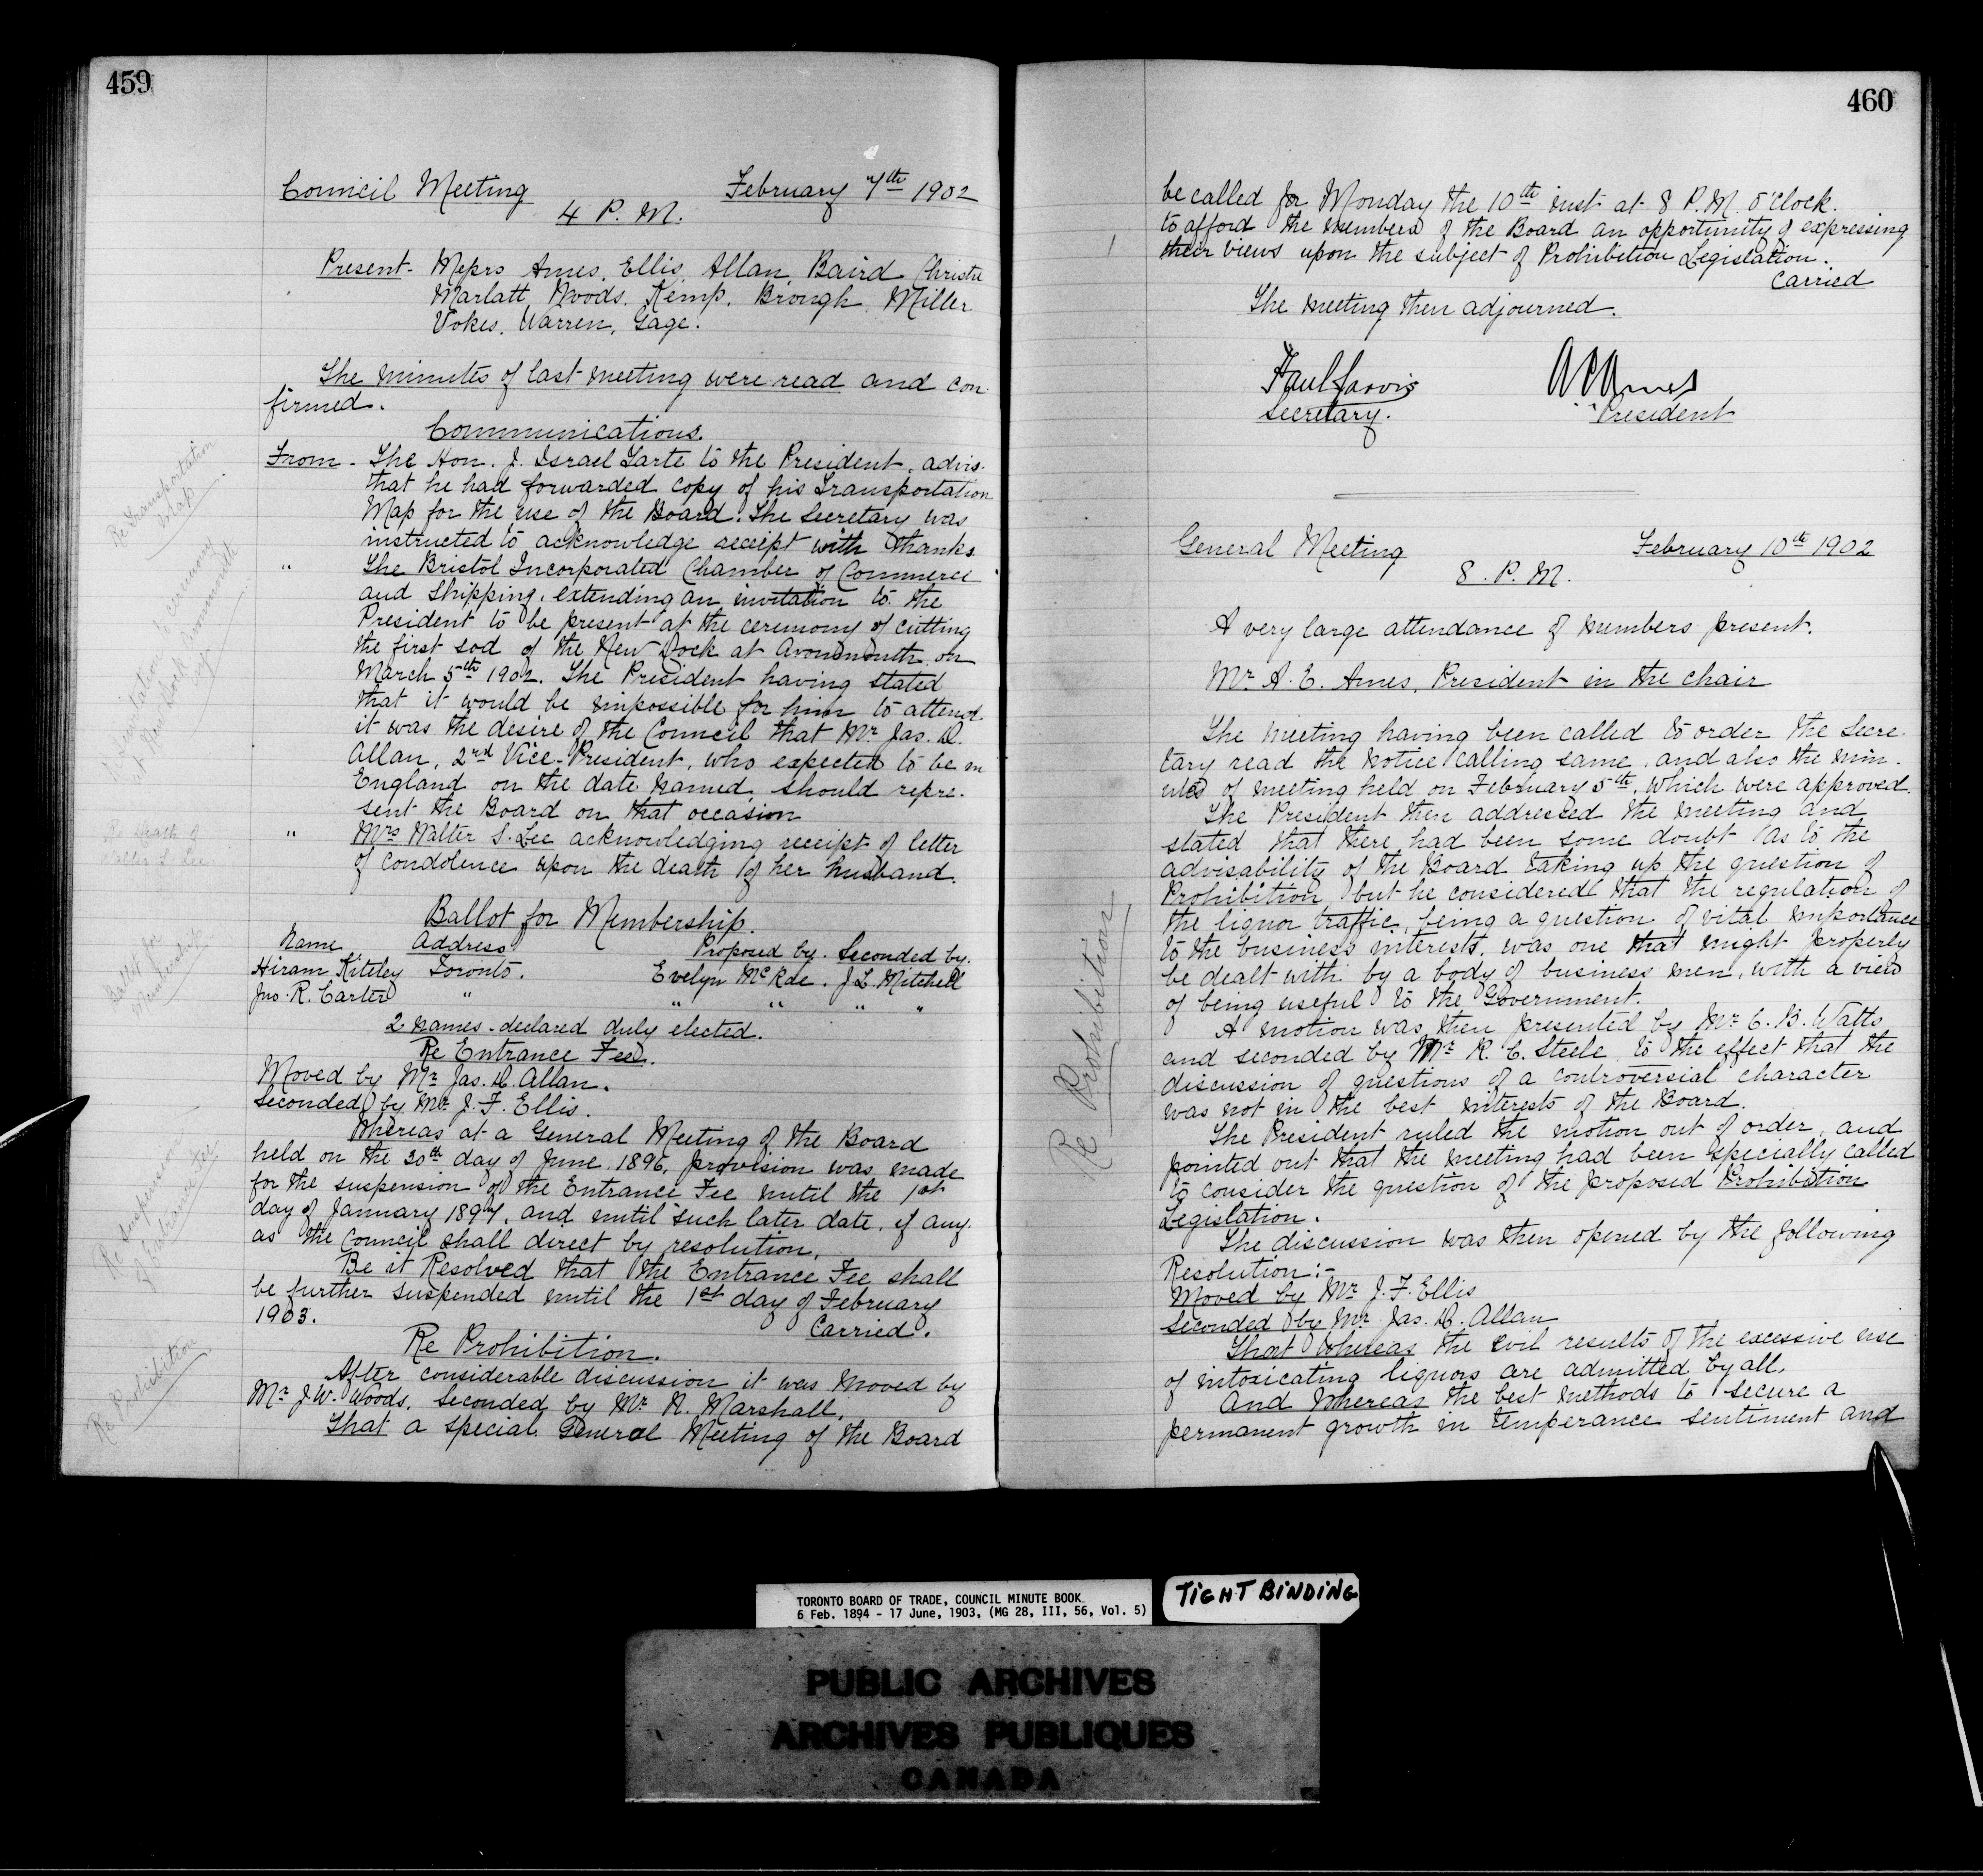 459
Council Meeting February 7th 1902
4 P. M.
Present- Messrs Ames, Ellis, Allan, Baird Christie
Marlatt, Woods. Kemp. Brough. Miller.
Vokes, Warren, Gage.
The minutes of last meeting were read and con-
firmed.
Communications.
From - The Hon. J. Israel Tarte to the President, advis.
that he had forwarded copy of his Transportation
Map for the use of the Board. The Secretary was
instructed to acknowledge receipt with thanks.
" The Bristol Incorporated Chamber of Commerce
and Shipping, extending an invitation to the
President to be present at the ceremony of cutting
the first sod of the New Dock at Avonmouth on
March 5th 1902. The President having stated
that it would be impossible for him to attend
it was the desire of the Council that Mr. Jas. D.
Allan, 2nd Vice-President, who expected to be in
England on the date named, should repre-
sent the Board on that occasion
" Mrs Walter S. Lee acknowledging receipt of letter
of condolence upon the death of her husband.
Ballot for Membership.
Name Address Proposed by. Seconded by.
Hiram Kiteley Toronto. Evelyn McRae. J L. Mitchell
Jno. R. Carter " " " " "
2 names - declared duly elected.
Re Entrance Fee.
Moved by Mr Jas. D. Allan.
Seconded by Mr. J. F. Ellis.
Whereas at a General Meeting of the Board
held on the 30th day of June 1896, provision was made
for the suspension of the Entrance Fee until the 1st
day of January 1897, and until such later date, if any
as the Council shall direct by resolution,
Be it Resolved that the Entrance Fee shall
be further suspended until the 1st day of February
1903. Carried.
Re Prohibition.
After considerable discussion it was moved by
Mr J. W. Woods, Seconded by Mr. N. Marshall,
That a special General Meeting of the Board
Re Transportation
Map
Re Invitation to ceremony
of New Dock Avonmouth
Re Death of
Walter S. Lee
Ballot for
Membership
Re Suspension
of Entrance Fee
Re Prohibition
460
be called for Monday the 10th inst at 8 P.M. O'Clock.
to afford the members of the Board an opportunity of expressing
their views upon the subject of Prohibition Legislation.
Carried
The meeting then adjourned.
Paul Jarvis A E Ames
Secretary. President
General Meeting February 10th 1902
8. P. M.
A very large attendance of members present.
Mr. A. E. Ames, President in the chair
The meeting having been called to order the Secre-
tary read the notice calling same, and also the min-
utes of meeting held on February 5th, which were approved.
The President then addressed the meeting and
stated that there had been some doubt as to the
advisability of the Board taking up the question of
Prohibition, but he considered that the regulation of
the liquor traffic, being a question of vital importance
to the business interests, was one that might properly
be dealt with by a body of business men, with a view
of being useful to the Government.
A motion was then presented by Mr. C. B. Watts
and seconded by Mr R. C. Steele to the effect that the
discussion of questions of a controversial character
was not in the best interests of the Board.
The President ruled the motion out of order, and
pointed out that the meeting had been specially called
to consider the question of the proposed Prohibition
Legislation.
The discussion was then opened by the following
Resolution:-
Moved by Mr. J. F. Ellis
Seconded by Mr Jas. D. Allan
That Whereas the evil results of the excessive use
of intoxicating liquors are admitted by all.
And Whereas the best methods to secure a
permanent growth in temperance sentiment and
Re Prohibition
TORONTO BOARD OF TRADE, COUNCIL MINUTE BOOK
6 Feb. 1894 - 17 June, 1903, (MG 28, III, 56, Vol. 5)
TIGHT BINDING
PUBLIC ARCHIVES
ARCHIVES PUBLIQUES
CANADA